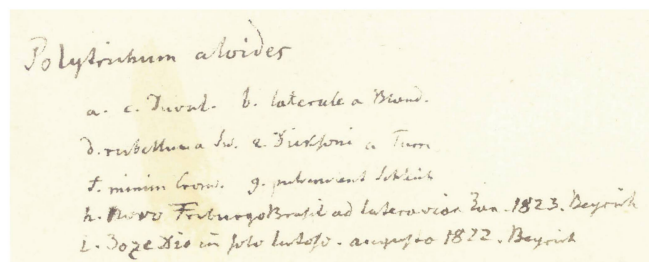 Polytrichum aloides
a. c. Duval. b. laterale a Brand.
d. rubellum a Sw. e. Dicksoni a Turn
f. minim Crom. g. Schleich
h. Novo Friburgo Brasil ad latera viar. Jan. 1823. Beyrich
i. Joze Dio in solo lutoso. augusto 1822. Beyrich